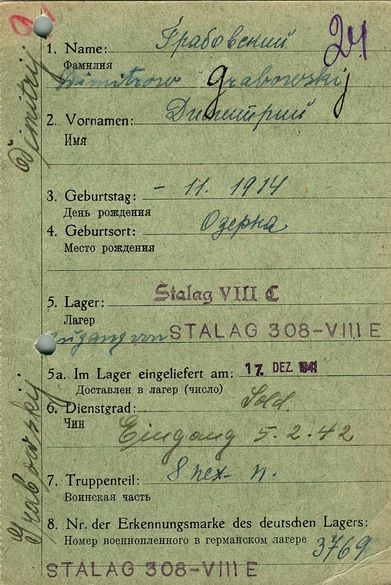 24
1. Name: Грабовский
Фамилия
Dimitrow Grabowskij
2. Vornamen: Димитрий
Имя
3. Geburtstag: – 11. 1914
День рождения
4. Geburtsort: Озерна
Место рождения
5. Lager: Stalag VIII C
Лагер
Zugang von STALAG 308–VIII E
5a. Im Lager eingeliefert am: 17. DEZ. 1941
Доставлен в лагер (число)
6. Dienstgrad: Sold.
Чин
Eingang 5.2.42
7. Truppenteil: 8 пех. п.
Воинская часть
8. Nr. der Erkennungsmarke des deutschen Lagers:
Номер военнопленного в германском лагере 3769
STALAG 308–VIII E
Dimitrij
Grabowskij